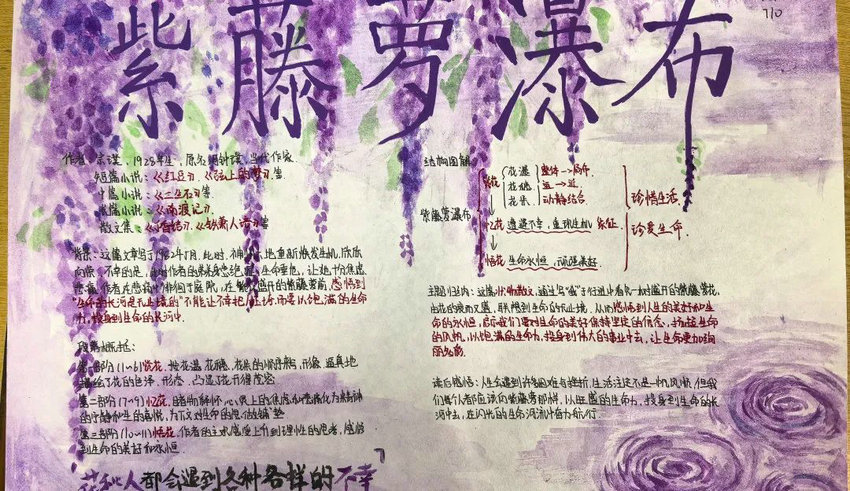 紫藤萝瀑布
710
作者：宗璞，1928年生，原名冯钟璞，当代作家
短篇小说：《红豆》《弦上的梦》等
中篇小说：《三生石》等
长篇小说：《南渡记》
散文集：《丁香结》《铁箫人语》等
背景：这篇文章写于1982年5月，此时，
地重新焕发生机，欣欣
向荣，不幸的是，
生命垂危，让她十分焦虑
悲痛，作者在悲痛中徘徊于庭院，在
盛开的紫藤萝前，感悟到
"生命的长河是无止境的"不能让不幸把人压垮，而要以饱满的生命
力，投身到生命的长河中.
段落概括：
第一部分(1~6)赏花.
按花瀑、花穗、花朵的顺序
形象、逼真地
描绘了花的色泽、形态，凸显了花开得茂盛
第二部分(7~9)忆花.
心灵上的焦虑和悲痛化为精神
的宁静和生的喜悦，为下文对生命的思
第三部分(10~11)悟花.
作者的主观感受上升到理性的思考，感悟
到生命的美好和永恒.
花和人都会遇到各种各样的不幸
结构图解
紫藤萝瀑布
赏花
花瀑
整体→局部
花穗
远→近
花朵
动静结合
珍惜生活
忆花 遭遇不幸，重现生机 象征
珍爱生命.
悟花 生命永恒，顽强美好.
主题归纳：这篇状物散文，通过写"我"于行进中看见一树盛开的紫藤萝花，
由花的衰而又盛，联想到生命的永无止境，从而感悟到人生的美好和生
命的永恒，启示我们要对生命的美好保持坚定的信念，扬起生命
的风帆，以饱满的生命力，投身到伟大的事业中去，让生命更加绚
读后感悟：人生会遇到许多困难与挫折，生活注定不是一帆风顺，但我
们每个人都应该向紫藤萝那样，以旺盛的生命力，投身到生命的长
河中去，在闪光的生命河流中奋力航行